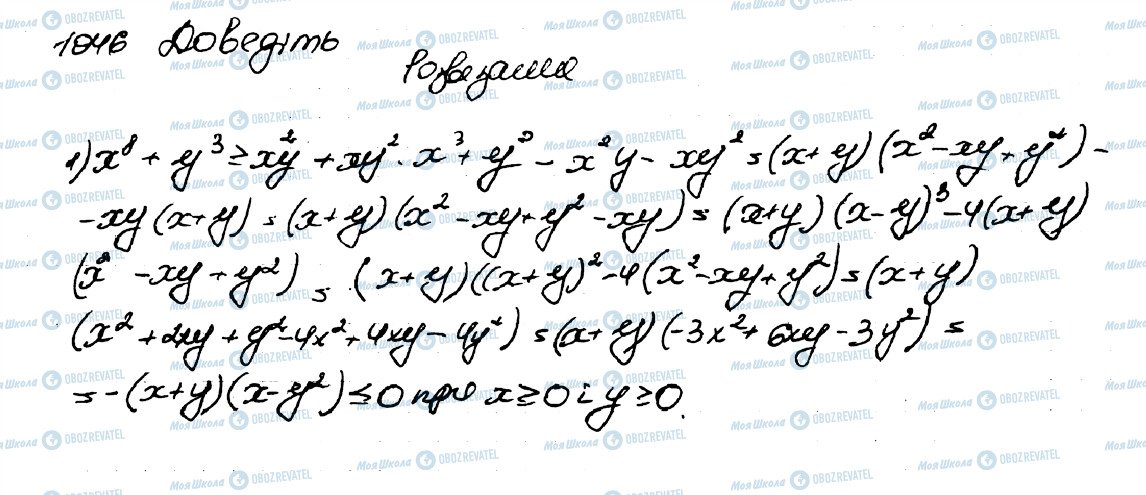 1046 Доведіть
Розвязання
1) x⁸ + y³ ≥ xy² + xy². x³ + y² - x²y - xy² = (x+y)(x² - xy + y²) -
- xy(x+y) = (x+y)(x² - xy + y² - xy) = (x+y)(x-y)³ - 4(x+y)
(x² - xy + y²) = (x+y)((x+y)² - 4(x² - xy + y²) = (x+y)
(x² + 2xy + y² - 4x² + 4xy - 4y²) = (x+y)(-3x² + 6xy - 3y²) =
= -(x+y)(x-y²) ≤ 0 при x ≥ 0 і y ≥ 0.